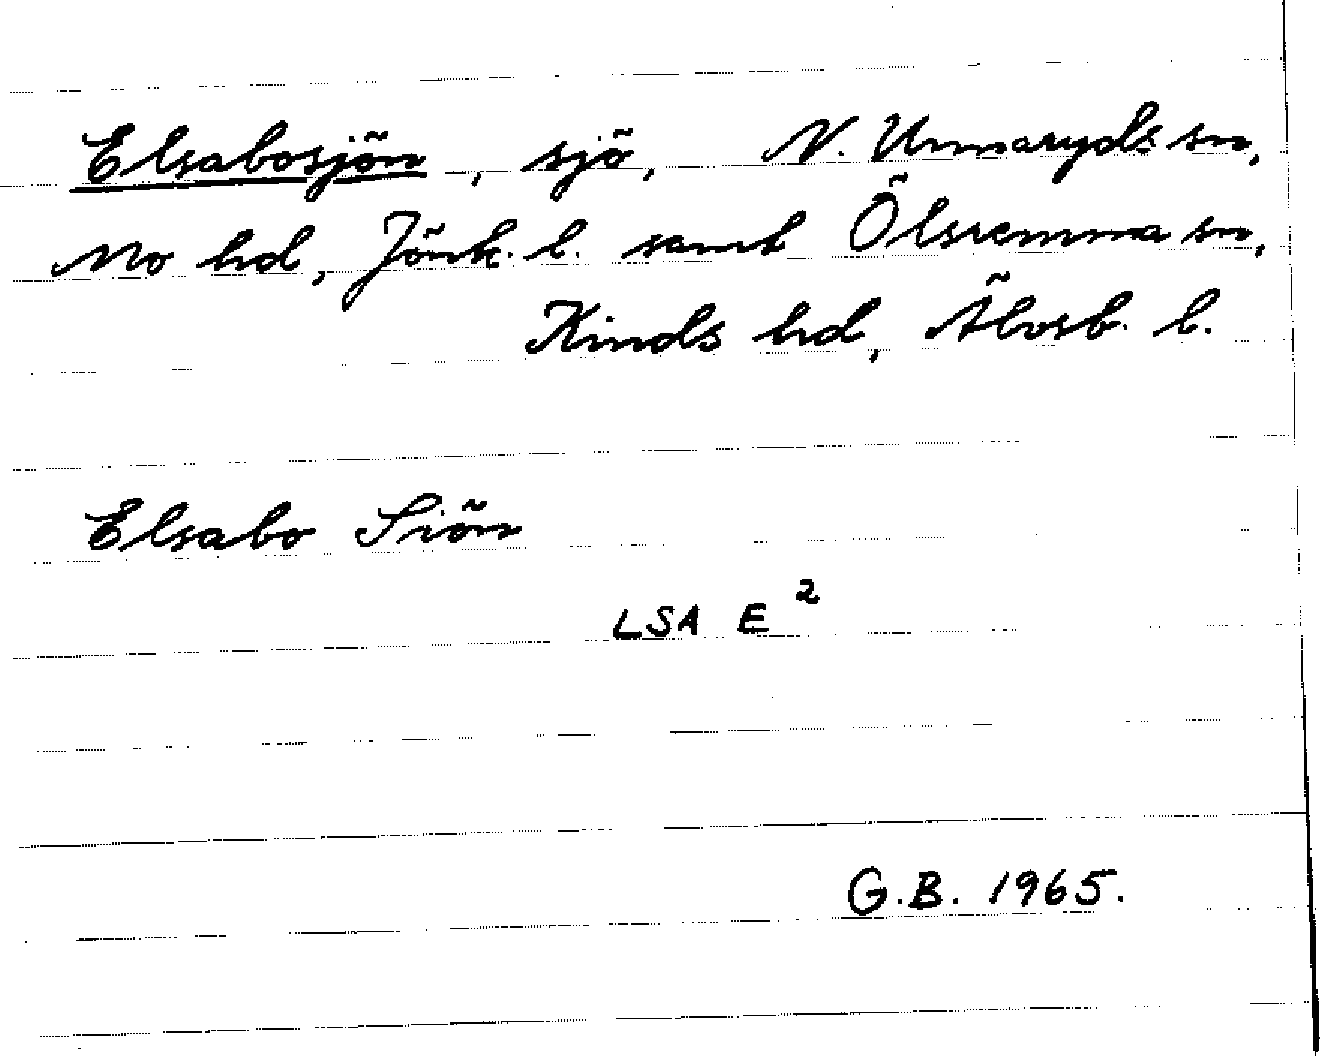 Elsabosjön, sjö, N. Unnaryds sn,
Mo hd, Jönk. l. samt Ölsremma sn,
Kinds hd, Älvsb. l.
Elsabo Siön
LSA E ²
G.B. 1965.